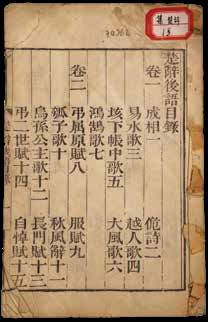 楚辭後語目錄
卷一
成相一
佹詩二
易水歌三
越人歌四
垓下帳中歌五
大風歌六
鴻鵠歌七
卷二
弔屈原賦八
服賦九
瓠子歌十
秋風辭十一
烏孫公主歌十二
長門賦十三
弔二世賦十四
自悼賦十五